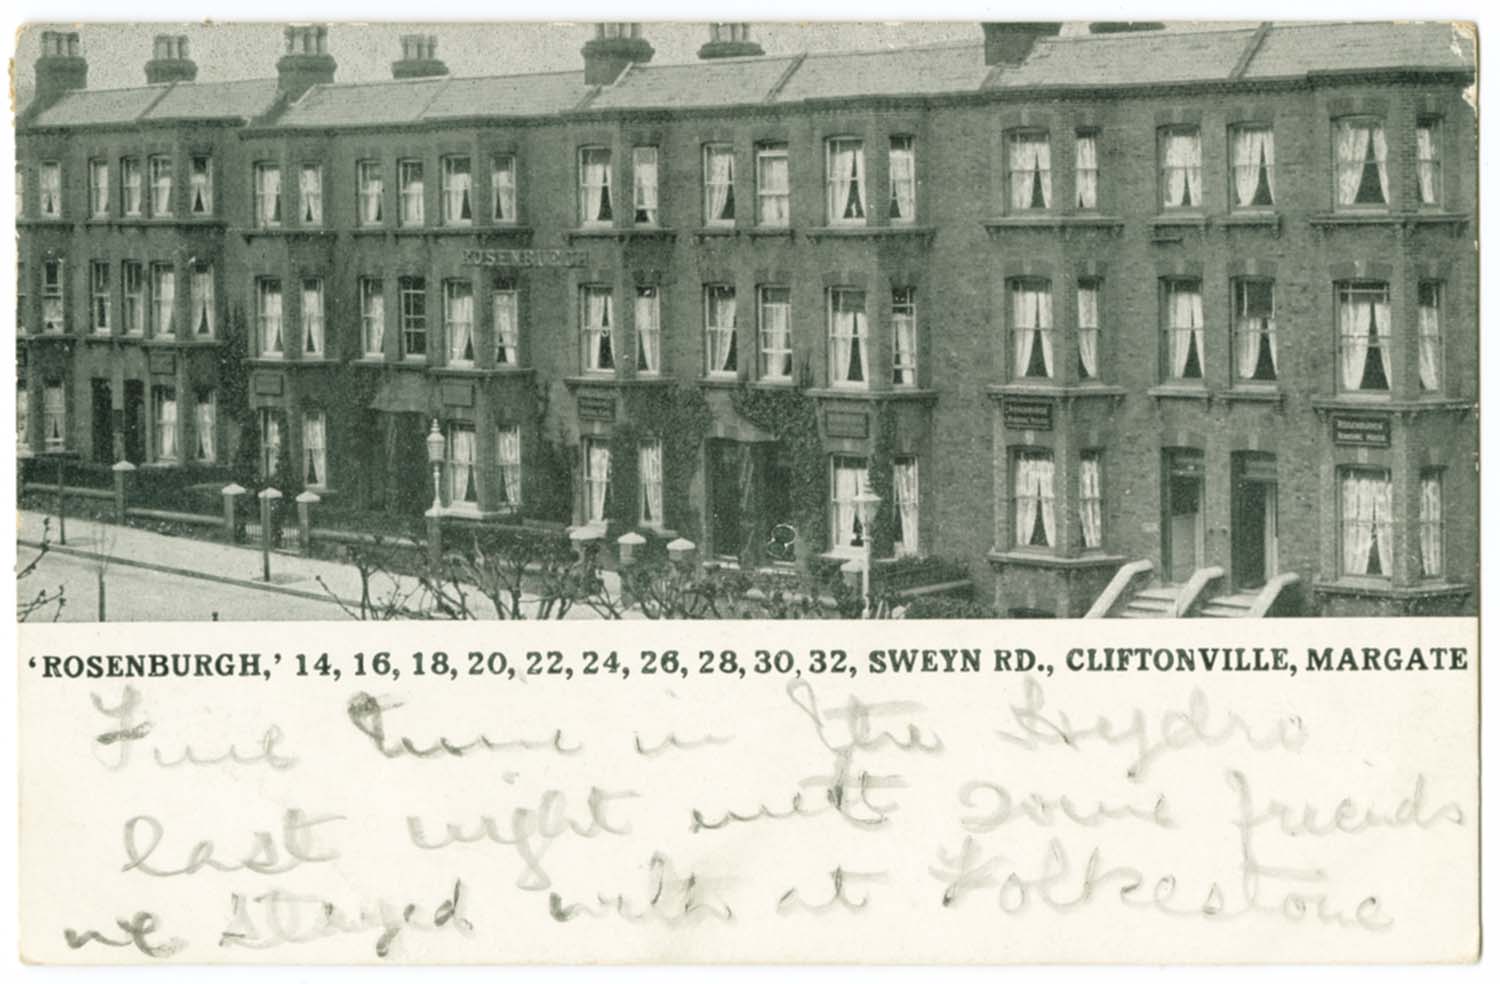 ROSENBURGH
ROSENBURGH
'ROSENBURGH,' 14, 16, 18, 20, 22, 24, 26, 28, 30, 32, SWEYN RD., CLIFTONVILLE, MARGATE
Fine time in the Hydro
last night mett some friends
we stayed with at Folkestone